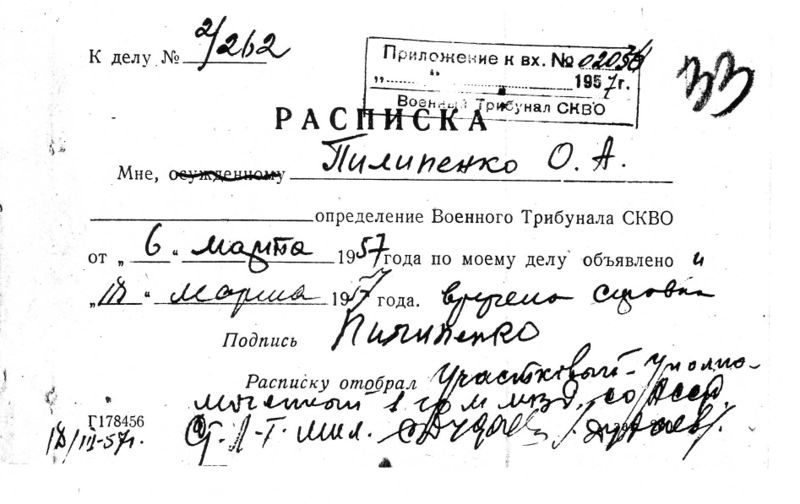 К делу № 2/262
Приложение к вх. №
„ “ 1957 г.
Военный Трибунал СКВО
33
РАСПИСКА
Мне, осужденному Пилипенко О. А.
определение Военного Трибунала СКВО
от „ 6 “ марта 1957 года по моему делу объявлено и
„18“ марта 1957 года. вручена справка
Подпись Пилипенко
Расписку отобрал Участковый-Уполно-
моченный
Г178456
18/III-57г. Ст. Л-т. мил.